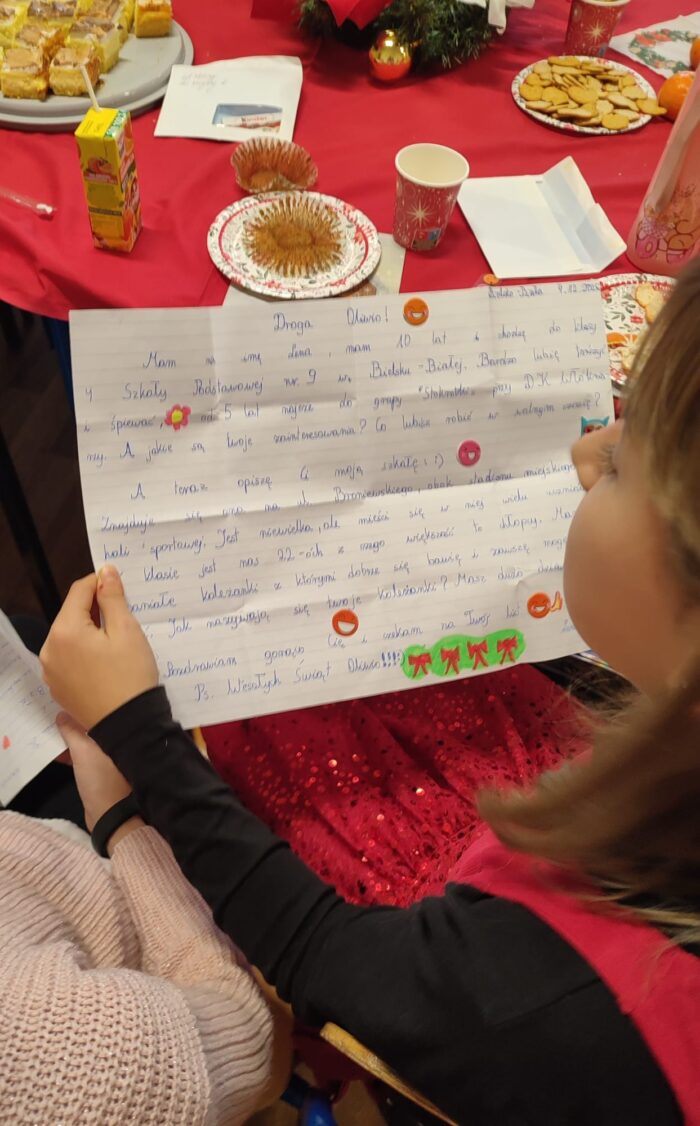 Bielsko-Biała 9.12.
Droga Oliwio!
Mam na imię Lena, mam 10 lat i chodzę do klasy
4 Szkoły Podstawowej nr. 9 w. Bielsku-Białej. Bardzo lubię tańczyć
i śpiewać, od 5 lat należe do grupy przy D.K Włókniarzy.
A jakie są twoje zainteresowana? Co lubisz robić w wolnym czasie?
A teraz opiszę Ci moją szkołę :)
Znajduje się ona na ul. Broniewskiego, obok stadionu miejskiego
hali sportowej. Jest niewielka, ale mieści się w niej wielu uczniów
klasie jest nas 22-oih z czego większość to chłopcy. Mam
wspaniałe koleżanki z którymi dobrze się bawię i zawsze mogę
Jak nazywają się twoje koleżanki? Masz dużo
Pozdrawiam gorąco Cię i czekam na Twój list
Ps. Wesołych Świąt Oliwio!!!!